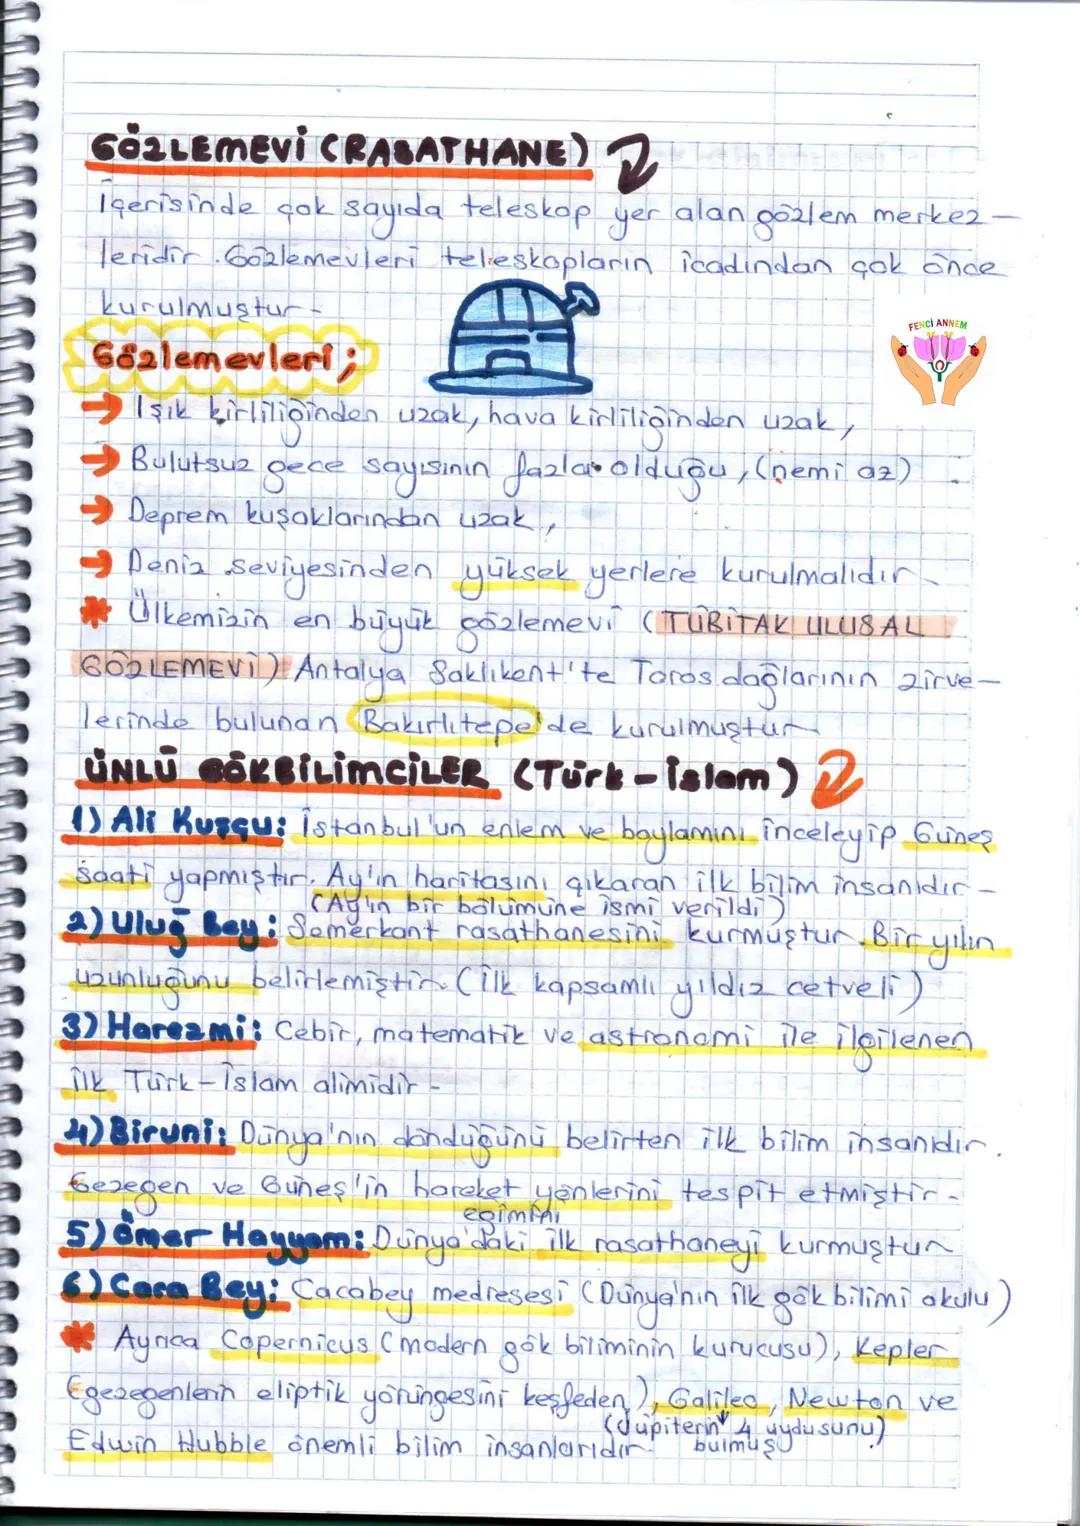 GÖZLEMEVİ (RASATHANE)
İçerisinde çok sayıda teleskop yer alan gözlem merkez-
leridir. Gözlemevleri teleskopların icadından çok önce
kurulmuştur.
FENCİ ANNEM
Gözlemevleri;
→ Işık kirliliğinden uzak, hava kirliliğinden uzak,
→ Bulutsuz gece sayısının fazla olduğu, (nemi az)
→ Deprem kuşaklarından uzak,
→ Deniz seviyesinden yüksek yerlere kurulmalıdır.
* Ülkemizin en büyük gözlemevi (TÜBİTAK ULUSAL
GÖZLEMEVİ) Antalya Saklıkent'te Toros dağlarının zirve-
lerinde bulunan Bakırlıtepe'de kurulmuştur.
ÜNLÜ GÖKBİLİMCİLER (Türk-İslam)
1) Ali Kuşçu: İstanbul'un enlem ve boylamını inceleyip Güneş
saati yapmıştır. Ay'ın haritasını çıkaran ilk bilim insanıdır.
(Ay'ın bir bölümüne ismi verildi)
2) Uluğ Bey: Semerkant rasathanesini kurmuştur. Bir yılın
uzunluğunu belirlemiştir. (İlk kapsamlı yıldız cetveli)
3) Harezmi: Cebir, matematik ve astronomi ile ilgilenen
ilk Türk-İslam alimidir.
4) Biruni: Dünya'nın döndüğünü belirten ilk bilim insanıdır.
Gezegen ve Güneş'in hareket yönlerini tespit etmiştir.
eğimini
5) Ömer Hayyam: Dünya'daki ilk rasathaneyi kurmuştur
6) Caca Bey: Cacabey medresesi (Dünya'nın ilk gök bilimi okulu)
* Ayrıca Copernicus (modern gök biliminin kurucusu), Kepler
(gezegenlerin eliptik yörüngesini keşfeden), Galileo, Newton ve
(Jüpiterin 4 uydusunu)
Edwin Hubble önemli bilim insanlarıdır.
bulmuş